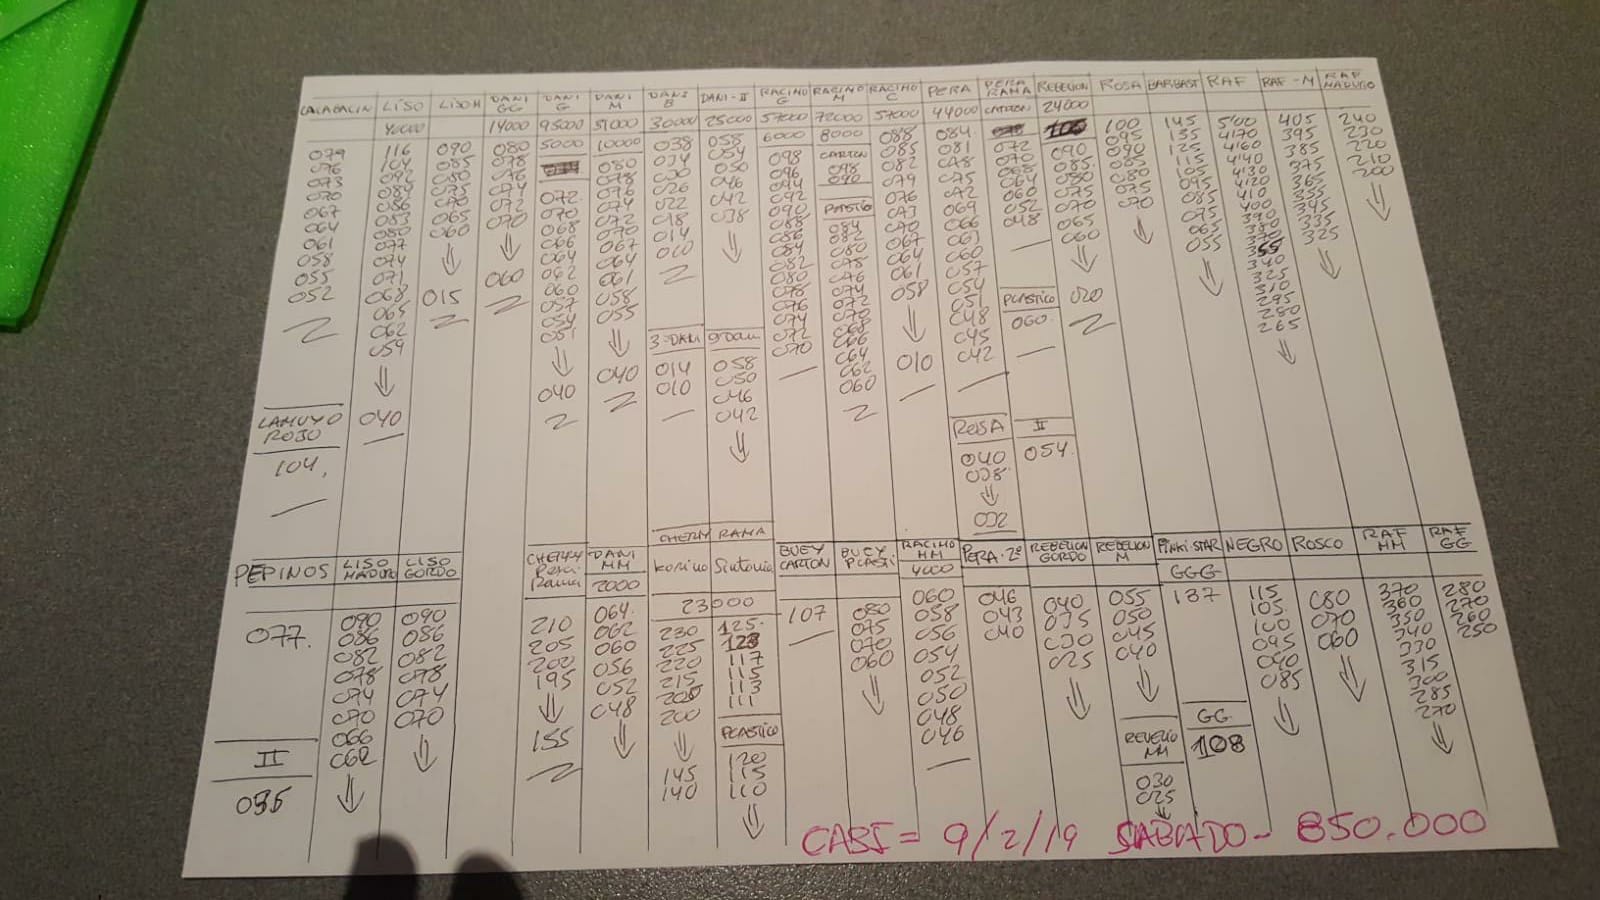 CALABACIN LISO LISO M DANI GG DANI G DANI M DANI B DANI-II RACIMO G RACIMO M RACIMO C PERA PERA RAMA REBELION ROSA BARBAST RAF RAF-M RAF MADURO
40000 14000 95000 51000 30000 25000 57000 72000 57000 44000 CARTON 24000
5000 10000 6000 8000
079 116 090 080 080 038 058 098 CARTON 088 084 072 090 100 145 5'00 405 240
076 104 085 078 078 034 054 096 098 085 081 070 085 095 135 4'70 395 230
073 092 080 076 072 076 030 050 094 090 082 078 068 080 090 125 4'60 385 220
070 084 075 074 070 074 026 046 092 PLASTICO 079 075 064 075 085 115 4'40 375 210
067 086 070 072 068 072 022 042 090 084 076 072 060 070 080 105 4'30 365 200
064 083 065 070 066 070 018 038 088 082 073 069 052 065 075 095 4'20 355
061 080 060 064 067 014 086 080 070 066 048 060 070 085 410 345
058 077 060 062 064 010 084 078 067 063 075 400 335
055 074 060 061 082 076 064 060 065 390 325
052 071 015 057 058 080 074 061 057 PLASTICO 020 055 370
068 054 055 078 072 058 054 060 355
065 051 076 070 051 340
062 3-DANI 9 Dani 074 068 048 325
059 040 040 014 058 072 066 010 045 310
010 050 070 064 042 295
046 062 280
042 060 265
LAMUYO ROJO 040 ROSA II
104. 040 054
038
032
CHERRY RAMA
PEPINOS LISO MADURO LISO GORDO CHERRY Pera Rama DANI MM Komino Sintonia BUEY CARTON BUEY PLASTI RACIMO MM PERA-2ª REBELION GORDO REBELION M PINKI STAR NEGRO ROSCO RAF MM RAF GG
2000 23000 4000 GGG
077. 090 090 210 064 230 125 107 080 060 046 040 055 137 115 080 370 280
086 086 205 062 225 123 075 058 043 035 050 105 070 360 270
082 082 200 060 220 117 070 056 040 030 045 100 060 350 260
078 078 195 056 215 115 060 054 025 040 095 340 250
074 074 052 205 113 052 090 330
070 070 048 200 111 050 085 315
066 155 PLASTICO 048 300
062 145 120 046 285
140 115 270
110
II REVELIO MM GG
035 030 108
025
CASI = 9/2/19 SABADO - 850.000